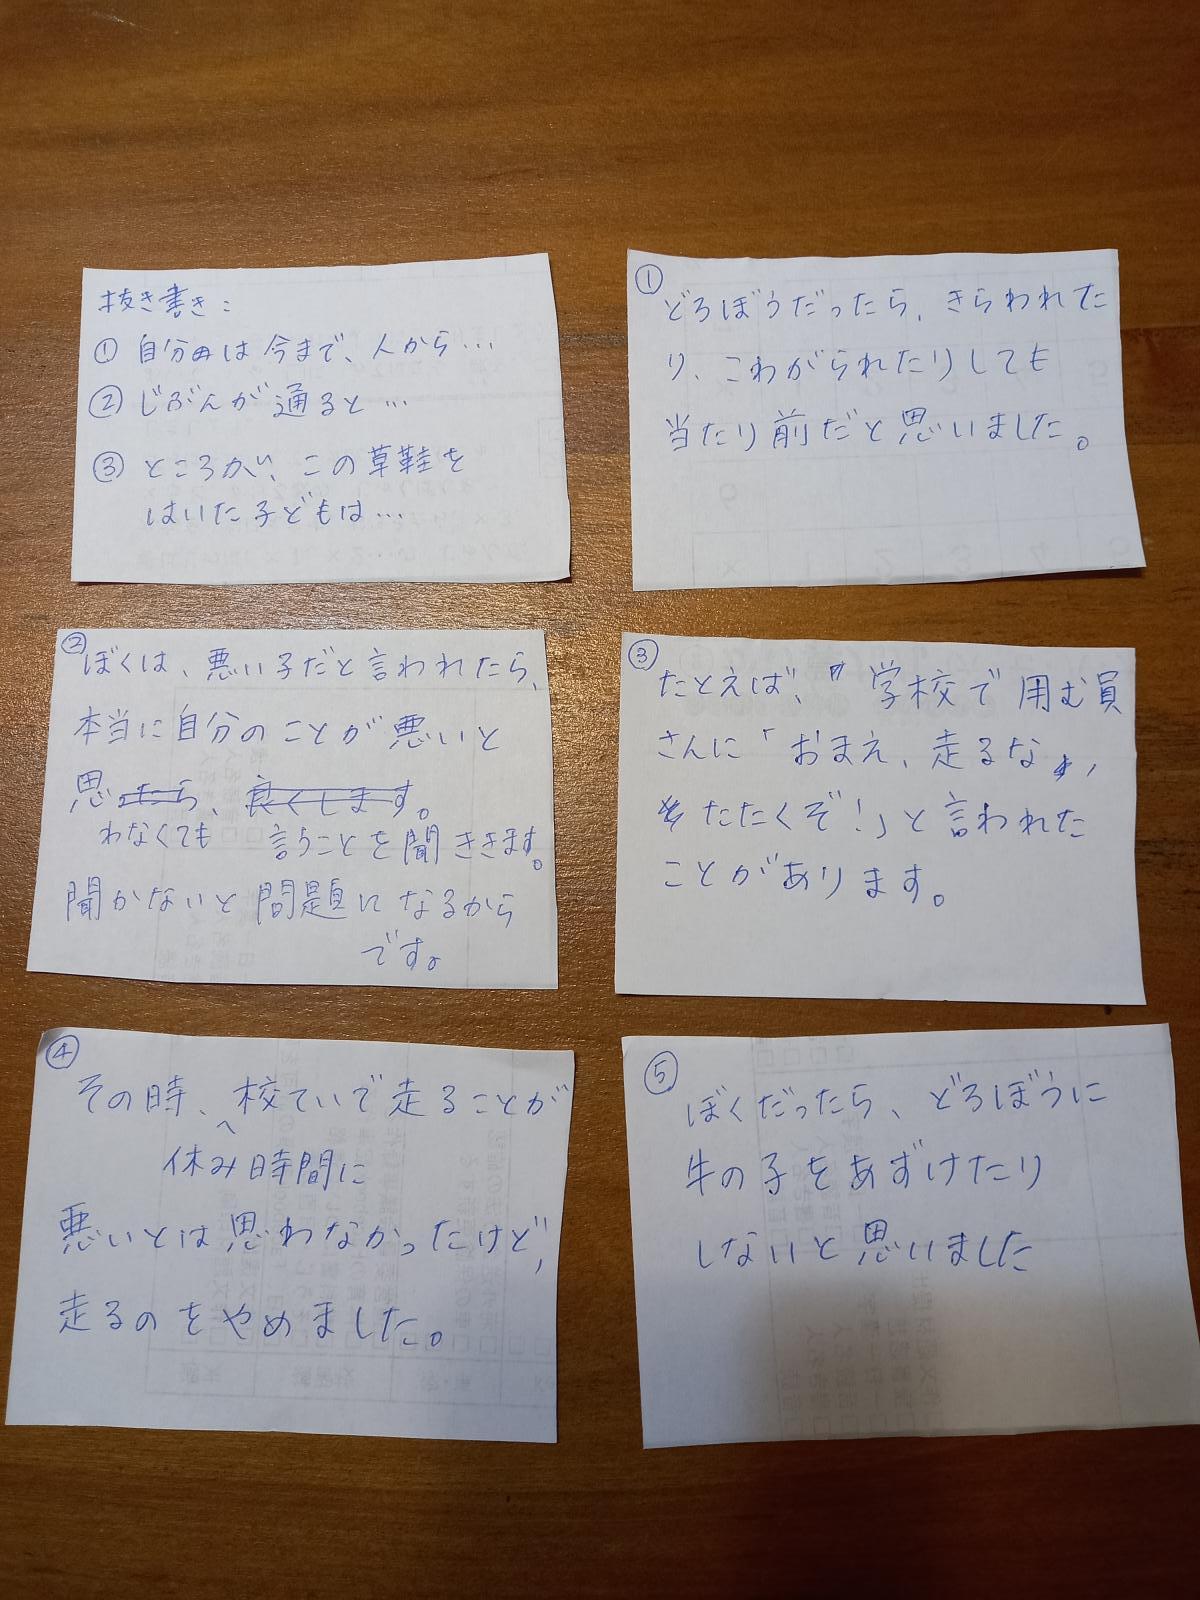 抜き書き:
① 自分は今まで、人から…
② じぶんが通ると…
③ ところが、この草鞋を
はいた子どもは…
①
どろぼうだったら、きらわれた
り、こわがられたりしても
当たり前だと思いました。
②
ぼくは、悪い子だと言われたら、
本当に自分のことが悪いと
思ったら、良くします。
わなくても 言うことを聞ききます。
聞かないと問題になるから
です。
③
たとえば、学校で用む員
さんに「おまえ、走るな,
たたくぞ!」と言われた
ことがあります。
④
その時、校ていで走ることが
休み時間に
悪いとは思わなかったけど,
走るのをやめました。
⑤
ぼくだったら、どろぼうに
牛の子をあずけたり
しないと思いました